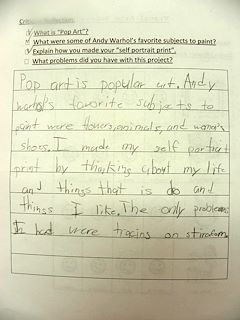 Critical Reflection:
What is "Pop Art"?
What were some of Andy Warhol's favorite subjects to paint?
Explain how you made your "self portrait print".
What problems did you have with this project?
Pop art is popular art. Andy
warhol's favorite subjects to
paint were flowers, animals, and woman's
shoes. I made my self portrait
print by thinking about my life
and things that is do and
things I like. The only problems
I had were tracing on stirofom